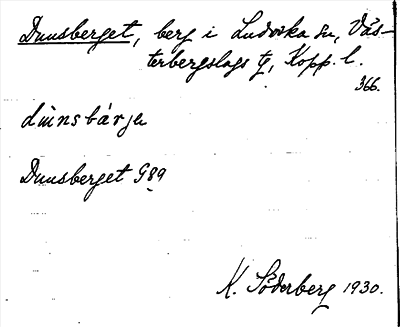 Dunsberget, berg i Ludvika sn, Väs-
terbergslags tg, Kopp. l.
366.
dúnsbárje
Dunsberget G89
K. Söderberg 1930.